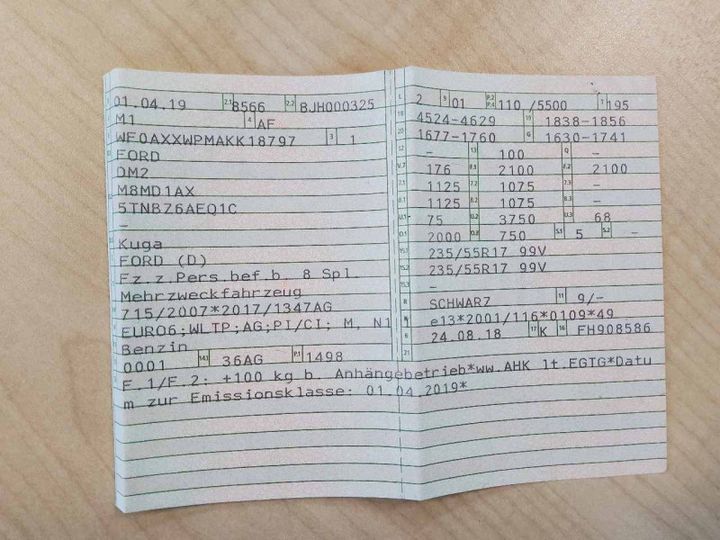 01.04.19 2.1 8566 2.2 BJH000325
M1 4 AF
WF0AXXWPMAKK18797 3 1
FORD
DM2
M8MD1AX
5TNBZ6AEQ1C
–
Kuga
FORD (D)
Fz.z.Pers.bef.b. 8 Spl.
Mehrzweckfahrzeug
715/2007*2017/1347AG
EURO6;WLTP;AG;PI/CI; M, N1
Benzin
0001 14.1 36AG P.1 1498
L 2 9 01 P.2 P.4 110 /5500 T 195
18 4524-4629 19 1838-1856
20 1677-1760 G 1630-1741
12 – 13 100 Q –
V.7 176 F.1 2100 F.2 2100
7.1 1125 7.2 1075 7.3 –
8.1 1125 8.2 1075 8.3 –
U.1 75 U.2 3750 U.3 68
O.1 2000 O.2 750 S.1 5 S.2 –
15.1 235/55R17 99V
15.2 235/55R17 99V
15.3 –
R SCHWARZ 11 9/–
K e13*2001/116*0109*49
6 24.08.18 17 K 16 FH908586
21
F.1/F.2: +100 kg b. Anhängebetrieb*ww.AHK lt.EGTG*Datu
m zur Emissionsklasse: 01.04.2019*